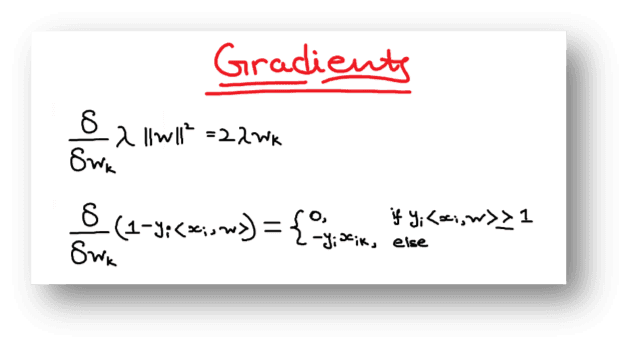 Gradients
δ/δwₖ λ ||w||² = 2λwₖ
δ/δwₖ (1-yᵢ<xᵢ,w>) = { 0, if yᵢ<xᵢ,w> ≥ 1
-yᵢxᵢₖ, else